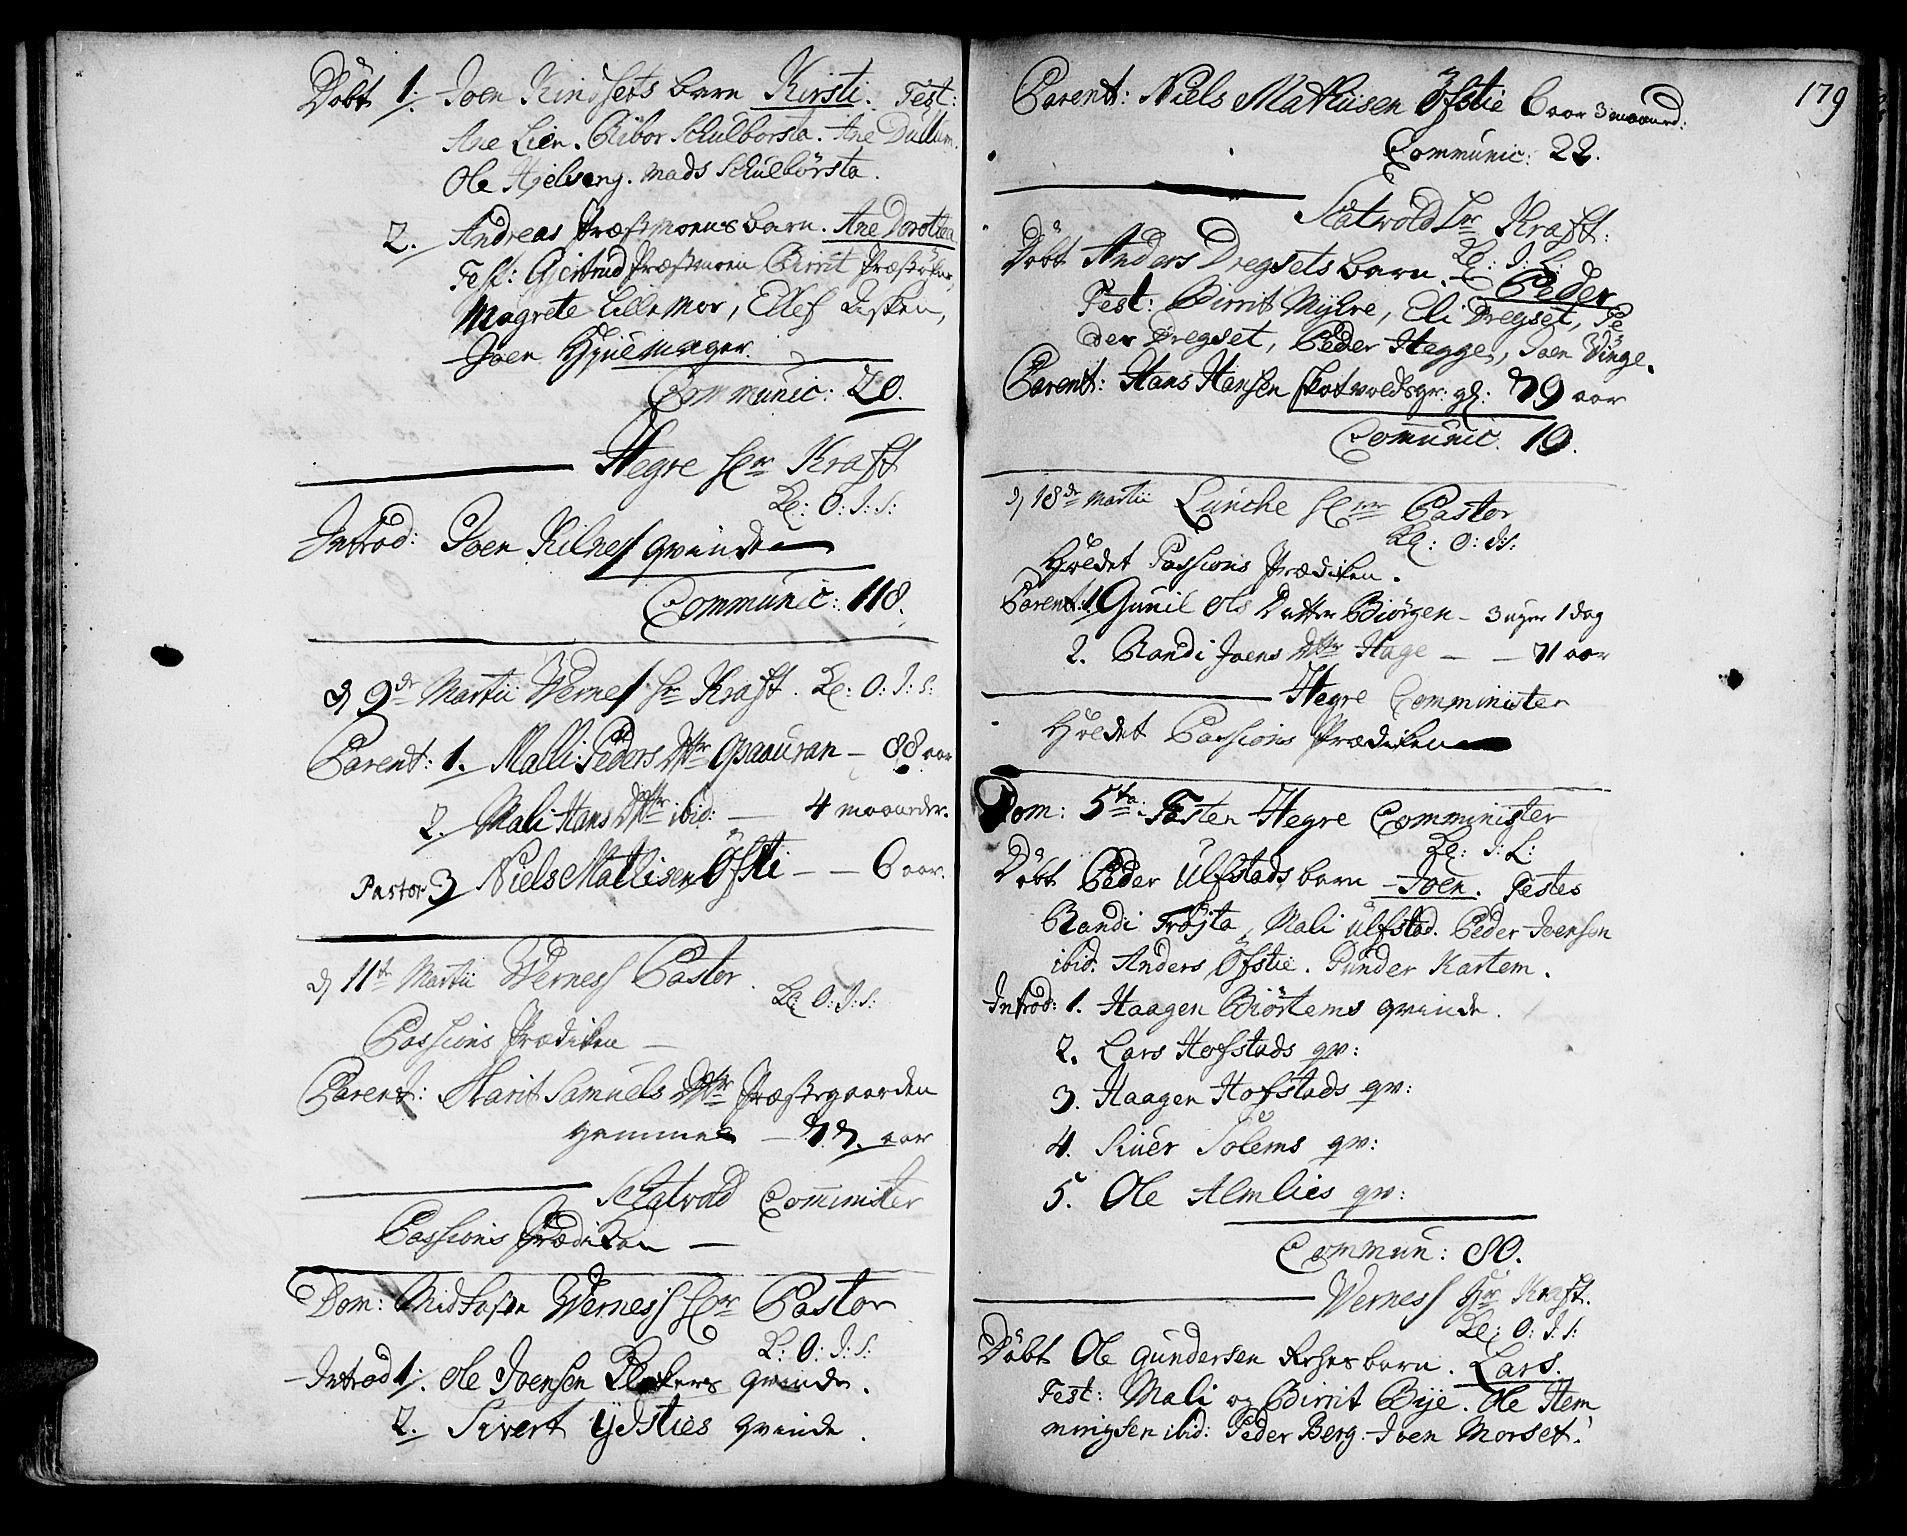 Döbt 1. Joen Kindsets barn Kirsti. Test:
Ane Lien. Ribor Schulborsta. Ane Dullum.
Ole Hjelseng. Mads Schulbörsta.
2. Andreas Præstmoens barn. Ane Dorothea
Test: Gjertrud Præstmoen Birrit
Magrete Lillemor, Ellef
Joen
Communic: 20.
Hegre Hr Kraft
Kl: O: I: S:
Introd: Joen Kilness qvinde
Communic: 118.
d 9de Martii Verness Hr Kraft. Kl: O: I: S:
Parent: 1. Malli Peders Dttr — 88 aar
2. Mali Hans Dttr ibid: — 4 maaneder.
Pastor 3 Niels Mathisen Öfsti — — 6 aar.
d 11te Martii Verness Pastor.
Kl O: I: S:
Passions Prædiken —
Parent: Marit Samuels Dttr Præstegaarden
— 77. aar
Schatvold Comminister
Passions Prædiken —
Dom: Midfasten Verness Hr Pastor
K: O: I: S:
Introd 1. Ole Joensen qvinde.
2. Sivert Ydsties qvinde.
179
Parent: Niels Mathiisen Öfstie 6 aar 3 maaned:
Communic: 22.
Skatvold Hr Kraft:
Kl: I: L:
Döbt Anders Dregsets barn. Peder
Test: Birrit Myhre, Eli Dregset, Pe
der Dregset, Peder Hegge, Joen Vinge.
Parent: Hans Hansen Skatvoldsgr: gl: 79 aar
Communic. 19.
d 18de Martii Lunche Hrr Pastor
Kl: O: I: S:
Holdet Passions Prædiken.
Parent: 1 Gunil Ols Datter Biörgen — 3 uger 1 dag
2. Randi Joens Dttr Hage — — 71 aar
Hegre Comminister
Holdet Passions Prædiken
Dom: 5ta Fasten Hegre Comminister
Kl: I: L:
Döbt Peder Ulfstads barn Joen. Testes
Randi Fröjta, Mali Ulfstad. Peder Joensen
ibid. Anders Öfstie. Punder Kartem.
Introd: 1. Haagen Biörtems qvinde.
2. Lars Hofstads qv:
3. Haagen Hofstads qv:
4. Siuer Solems qv:
5. Ole Almlies qv:
Commun: 80.
Verness Hr Kraft.
Kl: O: I: S:
Döbt Ole Gundersen barn. Lars.
Test: Mali og Birrit Bye. Ole Hem
mingsen ibid: Peder Berg. Joen Morset.